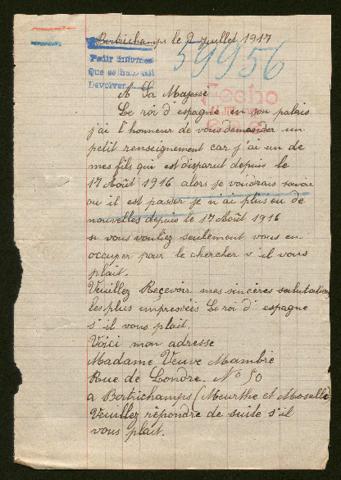 Bertrichamps le 2 juillet 1917
59956
Pedir informes
Devolver
A Sa Majesé
Le roi d'espagne en son palais
j'ai l'honneur de vous demander un
petit renseignement car j'ai un de
mes fils qui est disparut depuis le
17 Août 1916 alors je voudrais savoir
ou il est passer je n'ai plus eu de
nouvelles depuis le 17 Août 1916
si vous vouliez seulement vous en
occuper pour le chercher s'il vous
plait.
Veuillez Recevoir mes sincères salutations
les plus empressées Le roi d'espagne
s'il vous plait.
Voici mon adresse
Madame Veuve Mambré
Rue de Londre, No 50
a Bertrichamps (Meurthe et Moselle)
Veuillez répondre de suite s'il
vous plait.